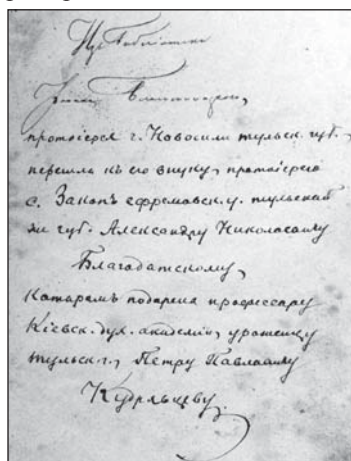 Из библiотеки
протоiерея г. Новосили тульск. губ.
перешла къ его внуку, протоiерею
с. Закопъ ефремовск. у. тульской
же губ. Александру Николаевичу
Благодатскому,
которымъ подарена профессору
Кiевск. дух. академiи, уроженцу
тульск. г., Петру Павловичу
Кудрявцеву.